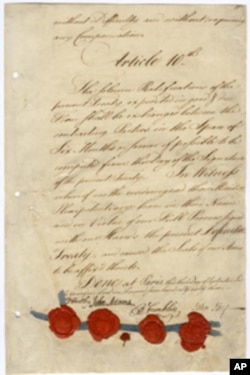 without Difficulty and without requiring
any Compensation.
Article 10th
The solemn Ratifications of the
present Treaty expedited in good & due
Form shall be exchanged between the
contracting Parties in the Space of
Six Months or sooner if possible to be
computed from the Day of the Signature
of the present Treaty. In Witness
whereof we the undersigned their Ministers
Plenipotentiary have in their Name
and in Virtue of our Full Powers signed
with our Hands the present Definitive
Treaty, and caused the Seals of our Arms
to be affix'd thereto.
Done at Paris, this third day of September
John Adams
B Franklin
John Jay
AP